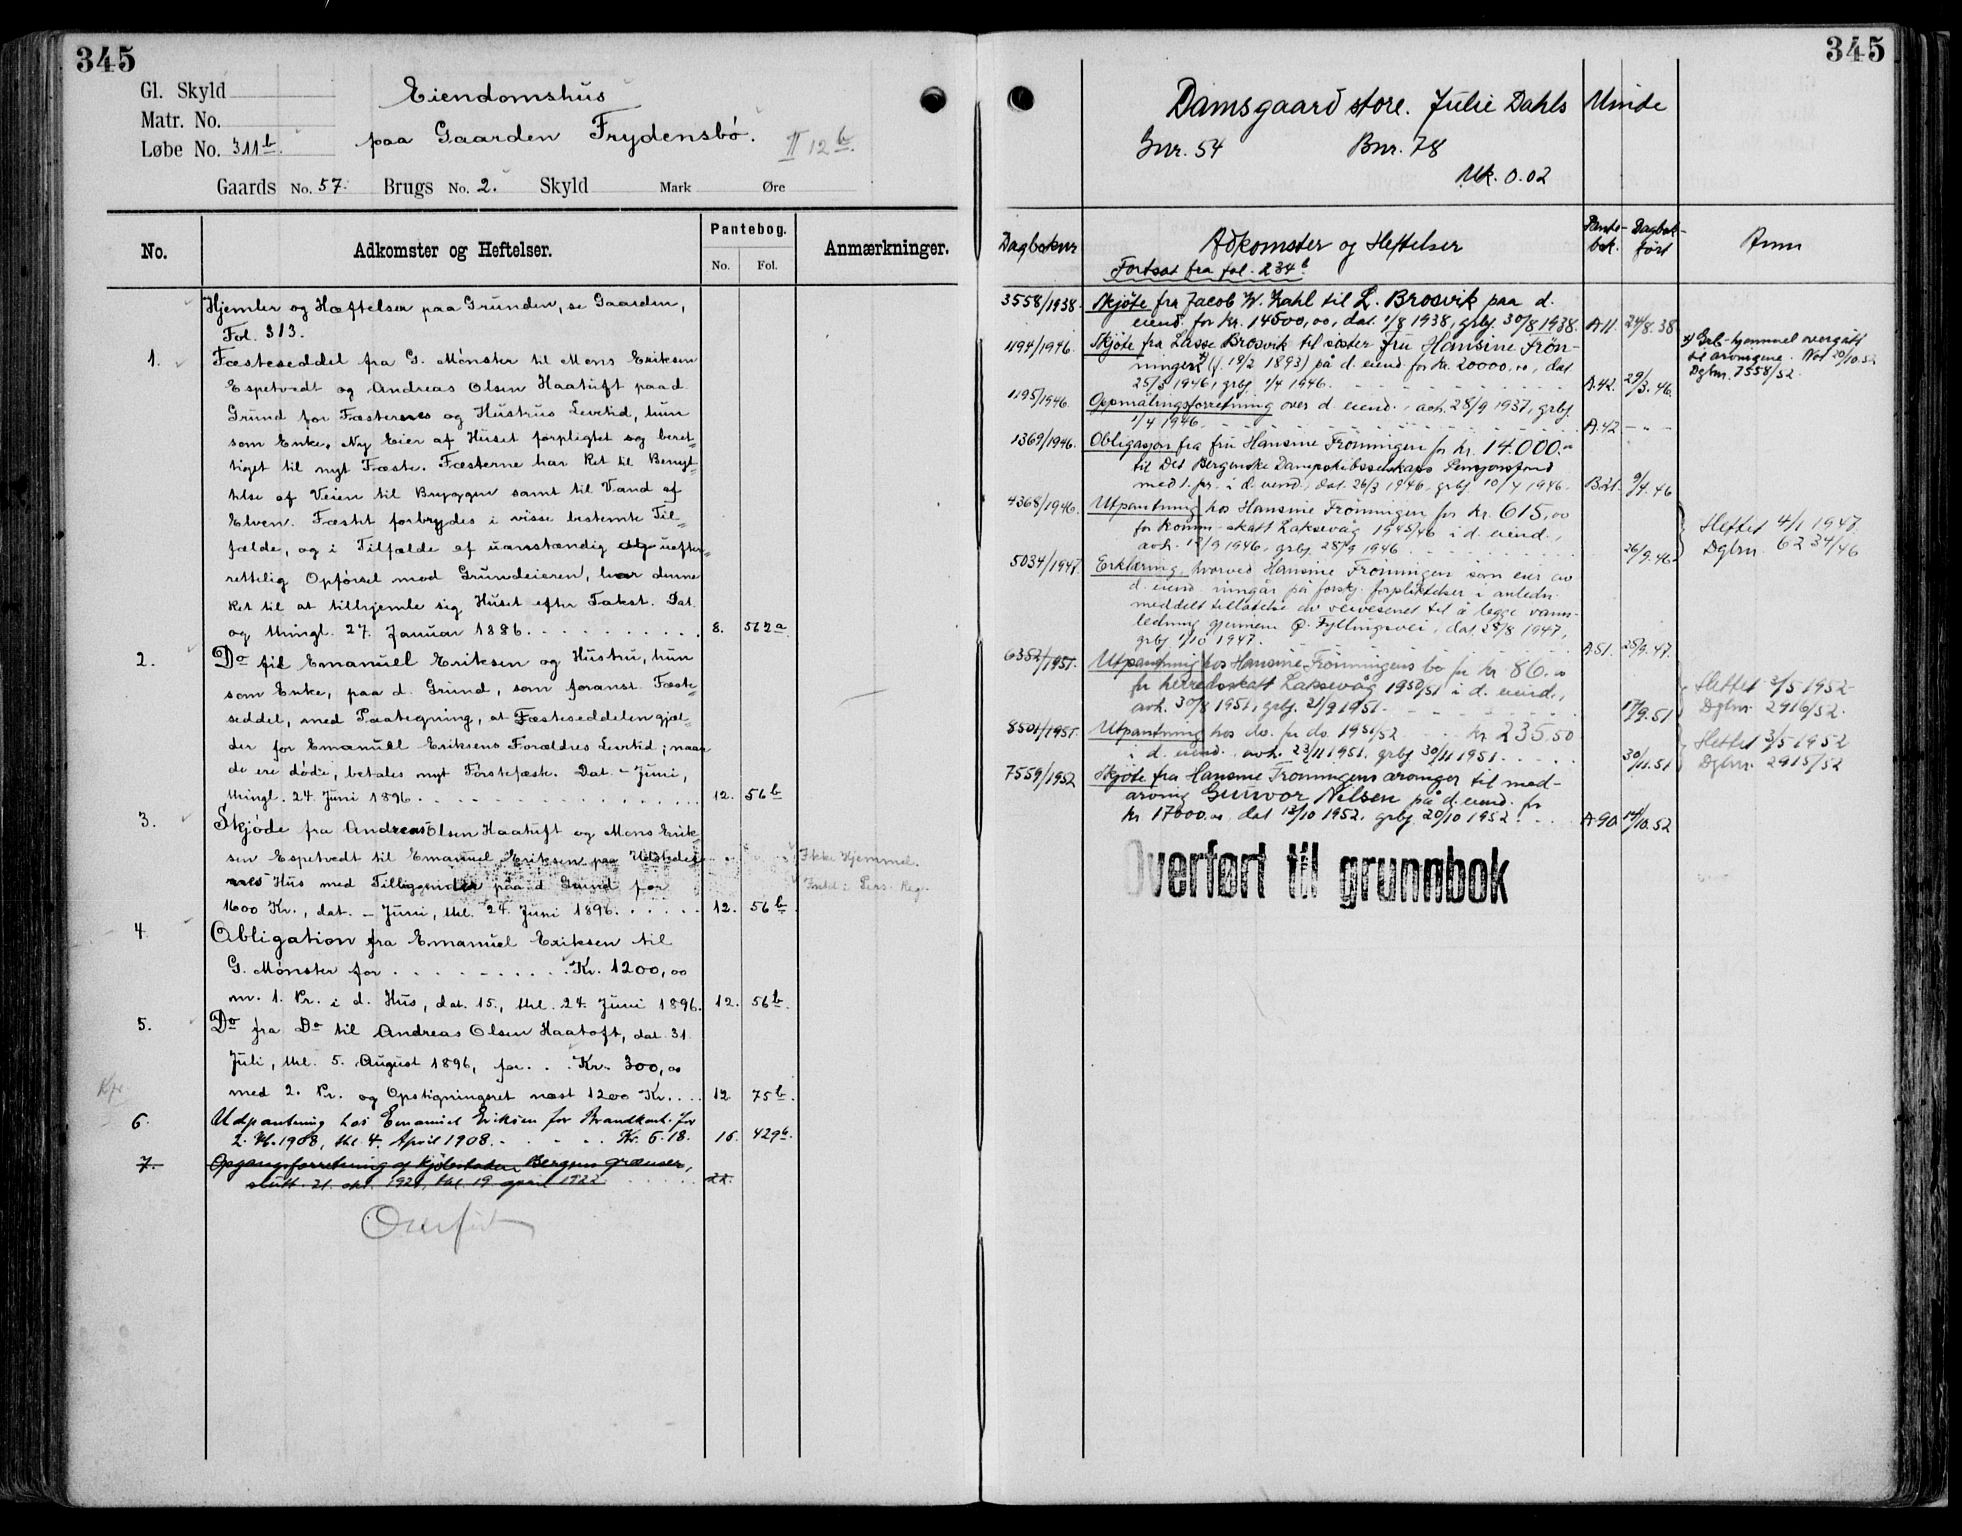 345
Gl. Skyld
Matr. No.
Løbe No. 311b.
Eiendomshus
paa Gaarden Frydensbø.
II 12b.
Gaards No. 57. Brugs No. 2. Skyld Mark Øre
No. Adkomster og Heftelser. Pantebog. Anmærkninger.
No. Fol.
Hjemler og Hæftelser paa Grunden, se Gaarden,
Fol. 313.
1. Fæsteseddel fra G. Mønster til Mons Eriksen
Espetvedt og Andreas Olsen Haatuft paa d.
Grund for Fæsterens og Hustrus Levetid, hun
som Enke. Ny Eier af Huset forpligtet og beret-
tiget til nyt Fæste. Fæsterne har Ret til Benyt-
telse af Veien til Bryggen samt til Vand af
Elven. Fæstet forbrydes i visse bestemte Til-
fælde, og i Tilfælde af uanstændig og uefter-
rettelig Opførsel mod Grundeieren, har denne
Ret til at tilhjemle sig Huset efter Takst. Dat.
og thingl. 27. Januar 1886. 8. 562a
2. Do til Emanuel Eriksen og Hustru, hun
som Enke, paa d. Grund, som foranst. Fæste-
seddel, med Paategning, at Fæsteseddelen gjæl-
der for Emanuel Eriksens Forældres Levetid; naar
de ere døde, betales nyt Førstefæste. Dat. – Juni,
thingl. 24. Juni 1896. 12. 56b
3. Skjøde fra Andreas Olsen Haatuft og Mons Erik-
sen Espetvedt til Emanuel Eriksen paa Udstedernes
Hus med Tilliggender paa d. Grund for
1600 Kr., dat. – Juni, thl. 24. Juni 1896. 12. 56b.
Ikke Hjemmel.
Indf. i Pers. Reg.
4. Obligation fra Emanuel Eriksen til
G. Mønster for Kr. 1200,00
m. 1. Pr. i d. Hus, dat. 15., thl. 24. Juni 1896. 12. 56b.
5. Do fra Do til Andreas Olsen Haatoft, dat. 31.
Juli, thl. 5. August 1896, for Kr. 300,00
med 2. Pr. og Opstigningsret næst 1200 Kr. 12. 75b.
6. Udpantning hos Emanuel Eriksen for Brandkont. for
1908, thl. 4. April 1908. Kr. 6.18. 16. 429b.
7. Opgangsforretning af Kjøbstaden Bergens grænser,
slutt. 21. okt. 1921, thl. 19. april 1922
Overført
345
Damsgaard store. Julie Dahls Minde
Gnr. 54 Bnr. 78
Mk. 0.02
Dagboknr Adkomster og Heftelser Pante-bok. Dagbok-ført Anm
Fortsat fra fol. 234b.
3558/1938. Skjøte fra Jacob W. Dahl til L. Brosvik paa d.
eiend. for kr. 14500,00, dat. 1/8 1938, grbj. 30/8 1938. A 11. 24/8. 38
1194/1946. Skjøte fra Lasse Brosvik til søster fru Hansine Frön-
ningen x) (f. 19/2 1893) på d. eiend. for kr. 20000,00, dat.
25/3 1946, grbj. 1/4 1946. A.42. 29/3. 46.
x) Grb-hjemmel overgått
til arvingene. Not 20/10.52
Dgbnr. 7558/52.
1195/1946. Oppmålingsforretning over d. eiend., avh. 28/9 1937, grbj.
1/4 1946. A.42 – " –
1369/1946. Obligasjon fra fru Hansine Frönningen for kr. 14.000.–
til Det Bergenske Dampskibsselskaps Pensjonsfond
med 1. pr. i d. eiend., dat. 26/3 1946, grbj. 10/4 1946. B.21. 9/4. 46
4368/1946. Utpantning hos Hansine Frönningen for kr. 615,00
for komm-skatt Laksevåg 1945/46 i d. eiend.,
avh. 12/9 1946, grbj. 28/9 1946 26/9. 46.
Slettet 4/1 1947.
Dgbnr. 6234/46
5034/1947. Erklæring hvorved Hansine Frönningen som eier av
d. eiend. inngår på forskj. forpliktelser i anledn.
meddelt tillatelse av veivesenet til å legge vann-
ledning gjennem Ø. Fyllingsvei, dat. 25/8 1947,
grbj. 1/10 1947. A 51. 25/9. 47.
6352/1951. Utpantning hos Hansine Frönningens bo for kr. 86.00
for herredsskatt Laksevåg 1950/51 i d. eiend.,
avh. 30/8 1951, grbj. 21/9 1951. 17/9. 51
Slettet 3/5 1952
Dgbnr. 2916/52.
8501/1951. Utpantning hos do. for do. 1951/52 kr. 235.50
i d. eiend. avh. 23/11 1951. grbj. 30/11 1951. 30/11. 51
Slettet 3/5 1952
Dgbnr. 2915/52
7559/1952 Skjøte fra Hansine Frønningens arvinger til med-
arving Gunvor Nilsen på d. eiend. for
kr 17000.00 dat 13/10 1952. grbj 20/10 1952. A 90 14/10. 52
Overført til grunnbok